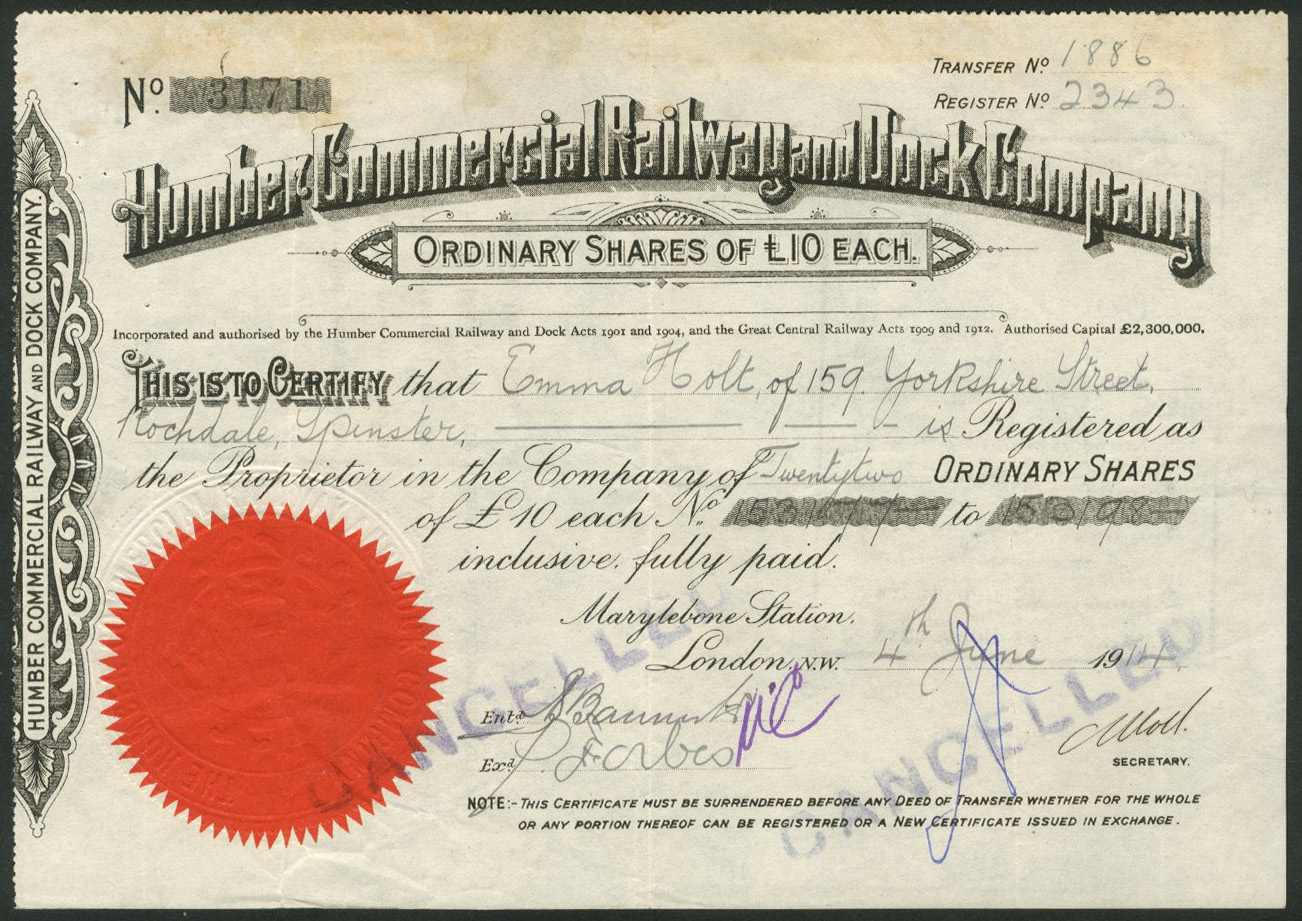 Nº 3171
TRANSFER Nº 1886
REGISTER Nº 2343
Humber Commercial Railway and Dock Company
ORDINARY SHARES OF £10 EACH.
Incorporated and authorised by the Humber Commercial Railway and Dock Acts 1901 and 1904, and the Great Central Railway Acts 1909 and 1912. Authorised Capital £2,300,000.
THIS IS TO CERTIFY that Emma Holt, of 159. Yorkshire Street,
Rochdale, Spinster, is Registered as
the Proprietor in the Company of Twentytwo ORDINARY SHARES
of £10 each Nº 153177 to 153198
inclusive. fully paid.
Marylebone Station.
London, N.W. 4th June 1914.
Entd
Exd Forbes
SECRETARY.
NOTE:- THIS CERTIFICATE MUST BE SURRENDERED BEFORE ANY DEED OF TRANSFER WHETHER FOR THE WHOLE
OR ANY PORTION THEREOF CAN BE REGISTERED OR A NEW CERTIFICATE ISSUED IN EXCHANGE.
CANCELLED
CANCELLED
HUMBER COMMERCIAL RAILWAY AND DOCK COMPANY.